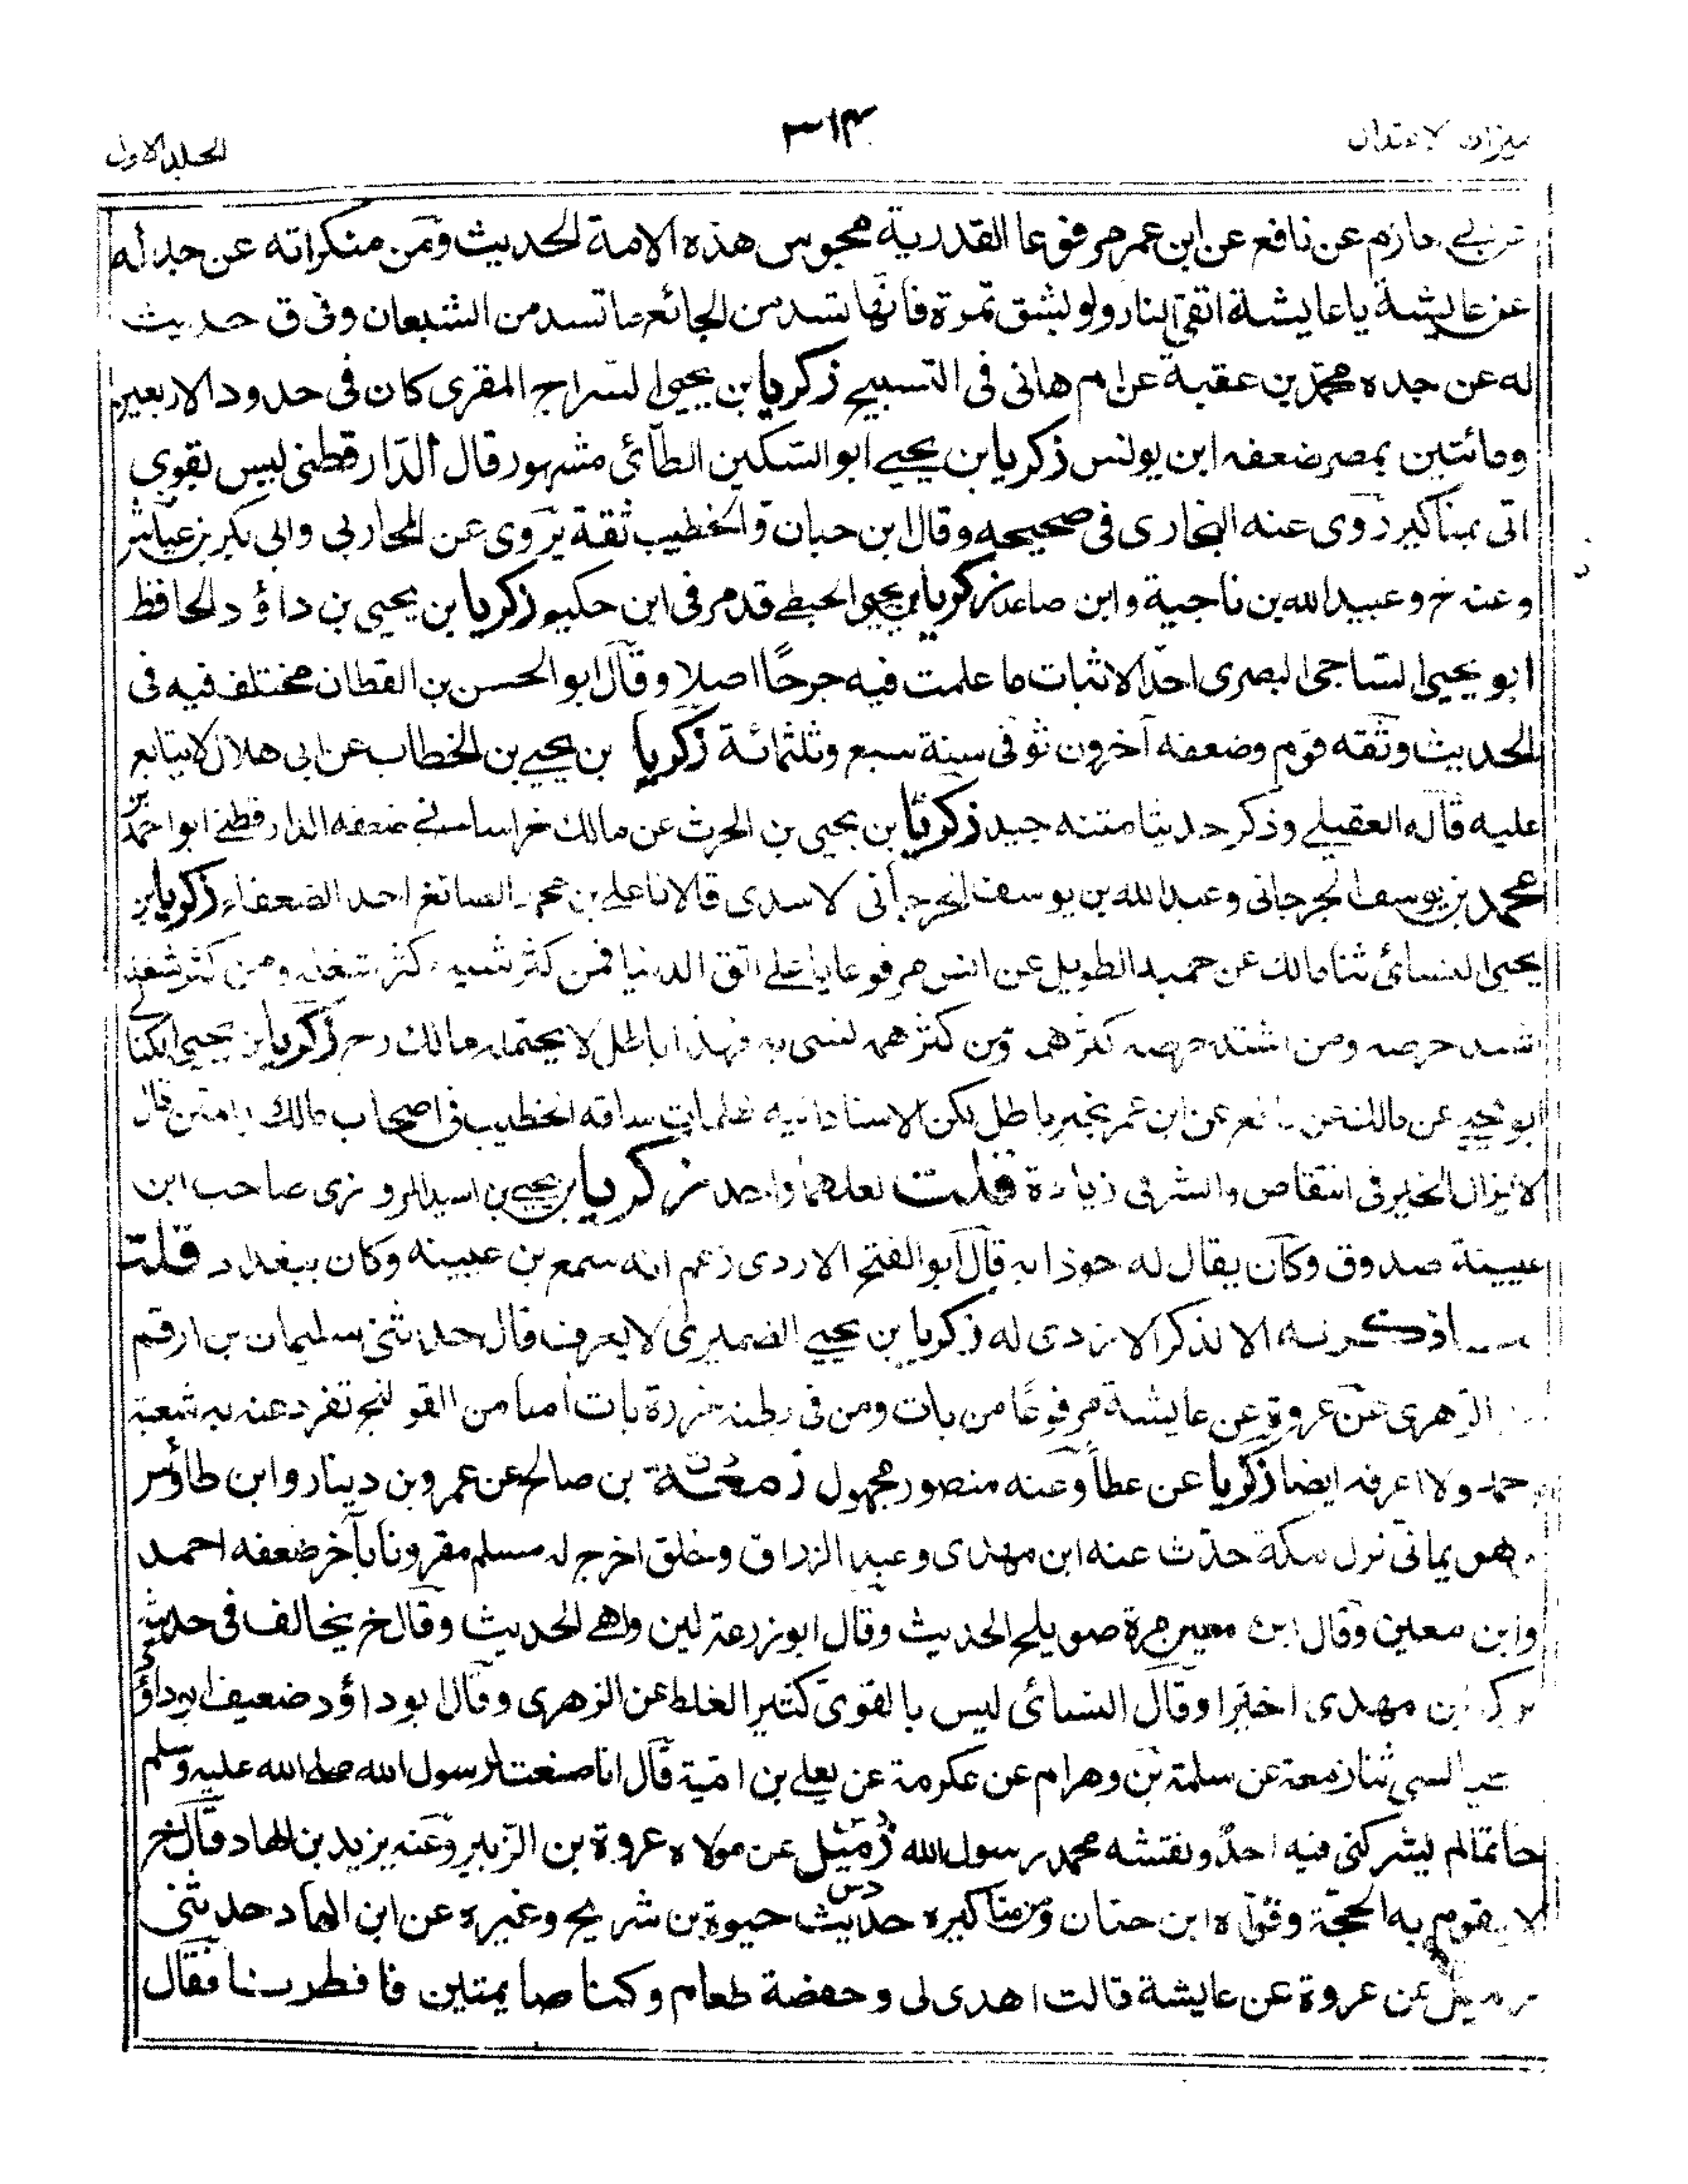 ميزان الاعتدال
٣١٤
الجلد الاول
حازم عن نافع عن ابن عمر مرفوعا القدرية مجوس هذه الامة الحديث ومن منكراته عن جد له
عن عايشة يا عايشة اتقى النار ولو بشق تمرة فانها تسد من الجائع ما تسد من الشبعان وفى ق حديث
له عن جده محمد بن عقبة عن ام هانى فى التسبيح زكريا بن يحيى السراج المقرى كان فى حدود الاربعين
ومائتين بمصر ضعفه ابن يونس زكريا بن يحيى ابو السكين الطائى مشهور قال الدارقطنى ليس بقوى
اتى بمناكير روى عنه البخارى فى صحيحه وقال ابن حبان والخطيب ثقة يروى عن المحاربى وابى بكر بن عياش
وعنه خ وعبيد الله بن ناجية وابن صاعد زكريا بن يحيى الحبطى قد مر فى ابن حكيم زكريا بن يحيى بن داؤد الحافظ
ابو يحيى الساجى البصرى احد الاثبات ما علمت فيه جرحًا اصلا وقال ابو الحسن بن القطان مختلف فيه فى
الحديث وثقه قوم وضعفه آخرون توفى سنة سبع وثلثمائة زكريا بن يحيى بن الخطاب عن ابى هلال لا يتابع
عليه قاله العقيلى وذكر حديثا متنه جيد زكريا بن يحيى بن الحرث عن مالك خراسانى ضعفه الدارقطنى ابو احمد بن
محمد بن يوسف الجرجانى وعبد الله بن يوسف الجرجانى الاسدى قالا نا على بن محمد الصائغ احد الضعفاء زكريا بن
يحيى النسائى ثنا مالك عن حميد الطويل عن انس مرفوعا يا على اتق الدنيا فمن كثر شبه كثر شغله ومن كثر شغله
اشتد حرصه ومن اشتد حرصه كثر همه ومن كثر همه نسى ربه فهذا باطل لا يحتمله مالك رح زكريا بن يحيى الكنانى
ابو يحيى عن مالك عن نافع عن ابن عمر بخبر باطل لكن الاسناد اليه ظلمات ساقه الخطيب فى اصحاب مالك يا متن قال
لا يزال الخير فى انتقاص والشر فى زيادة قلت لعلهما واحد زكريا بن يحيى بن اسيد المروزى صاحب ابن
عيينة صدوق وكان يقال له جوذابه قال ابو الفتح الازدى زعم انه سمع بن عيينه وكان ببغداد قلت
اذكرنه الا لذكر الازدى له زكريا بن يحيى الضميرى لا يعرف قال حدثنى سليمان بن ارقم
الزهرى عن عروة عن عايشة مرفوعًا من بات ومن فى بطنه جزرة بات امنا من القولنج تفرد عنه به شعبة
ولا اعرفه ايضا زكريا عن عطأ وعنه منصور مجهول زمعة بن صالح عن عمرو بن دينار وابن طاؤس
هو يمانى نزل مكة حدث عنه ابن مهدى وعبد الرزاق وخلق اخرج له مسلم مقرونا بآخر ضعفه احمد
وابن معين وقال ابن معين مرة صويلح الحديث وقال ابو زرعة لين واهى الحديث وقال خ يخالف فى حديثه
تركه ابن مهدى اخيرا وقال النسائى ليس بالقوى كثير الغلط عن الزهرى وقال ابو داؤد ضعيف ابو داؤد
ثنا زمعة عن سلمة بن وهرام عن عكرمة عن يعلى بن امية قال انا صنعت لرسول الله صلى الله عليه وسلم
خاتما لم يشركنى فيه احد ونقشه محمد رسول الله زميل عن مولاه عروة بن الزبير وعنه يزيد بن الهاد قال خ
لا يقوم به الحجة وقواه ابن حبان ومن مناكيره دس حديث حيوة بن شريح وغيره عن ابن الهاد حدثنى
زميل عن عروة عن عايشة قالت اهدى لى وحفصة طعام وكنا صايمتين فافطرنا فقال